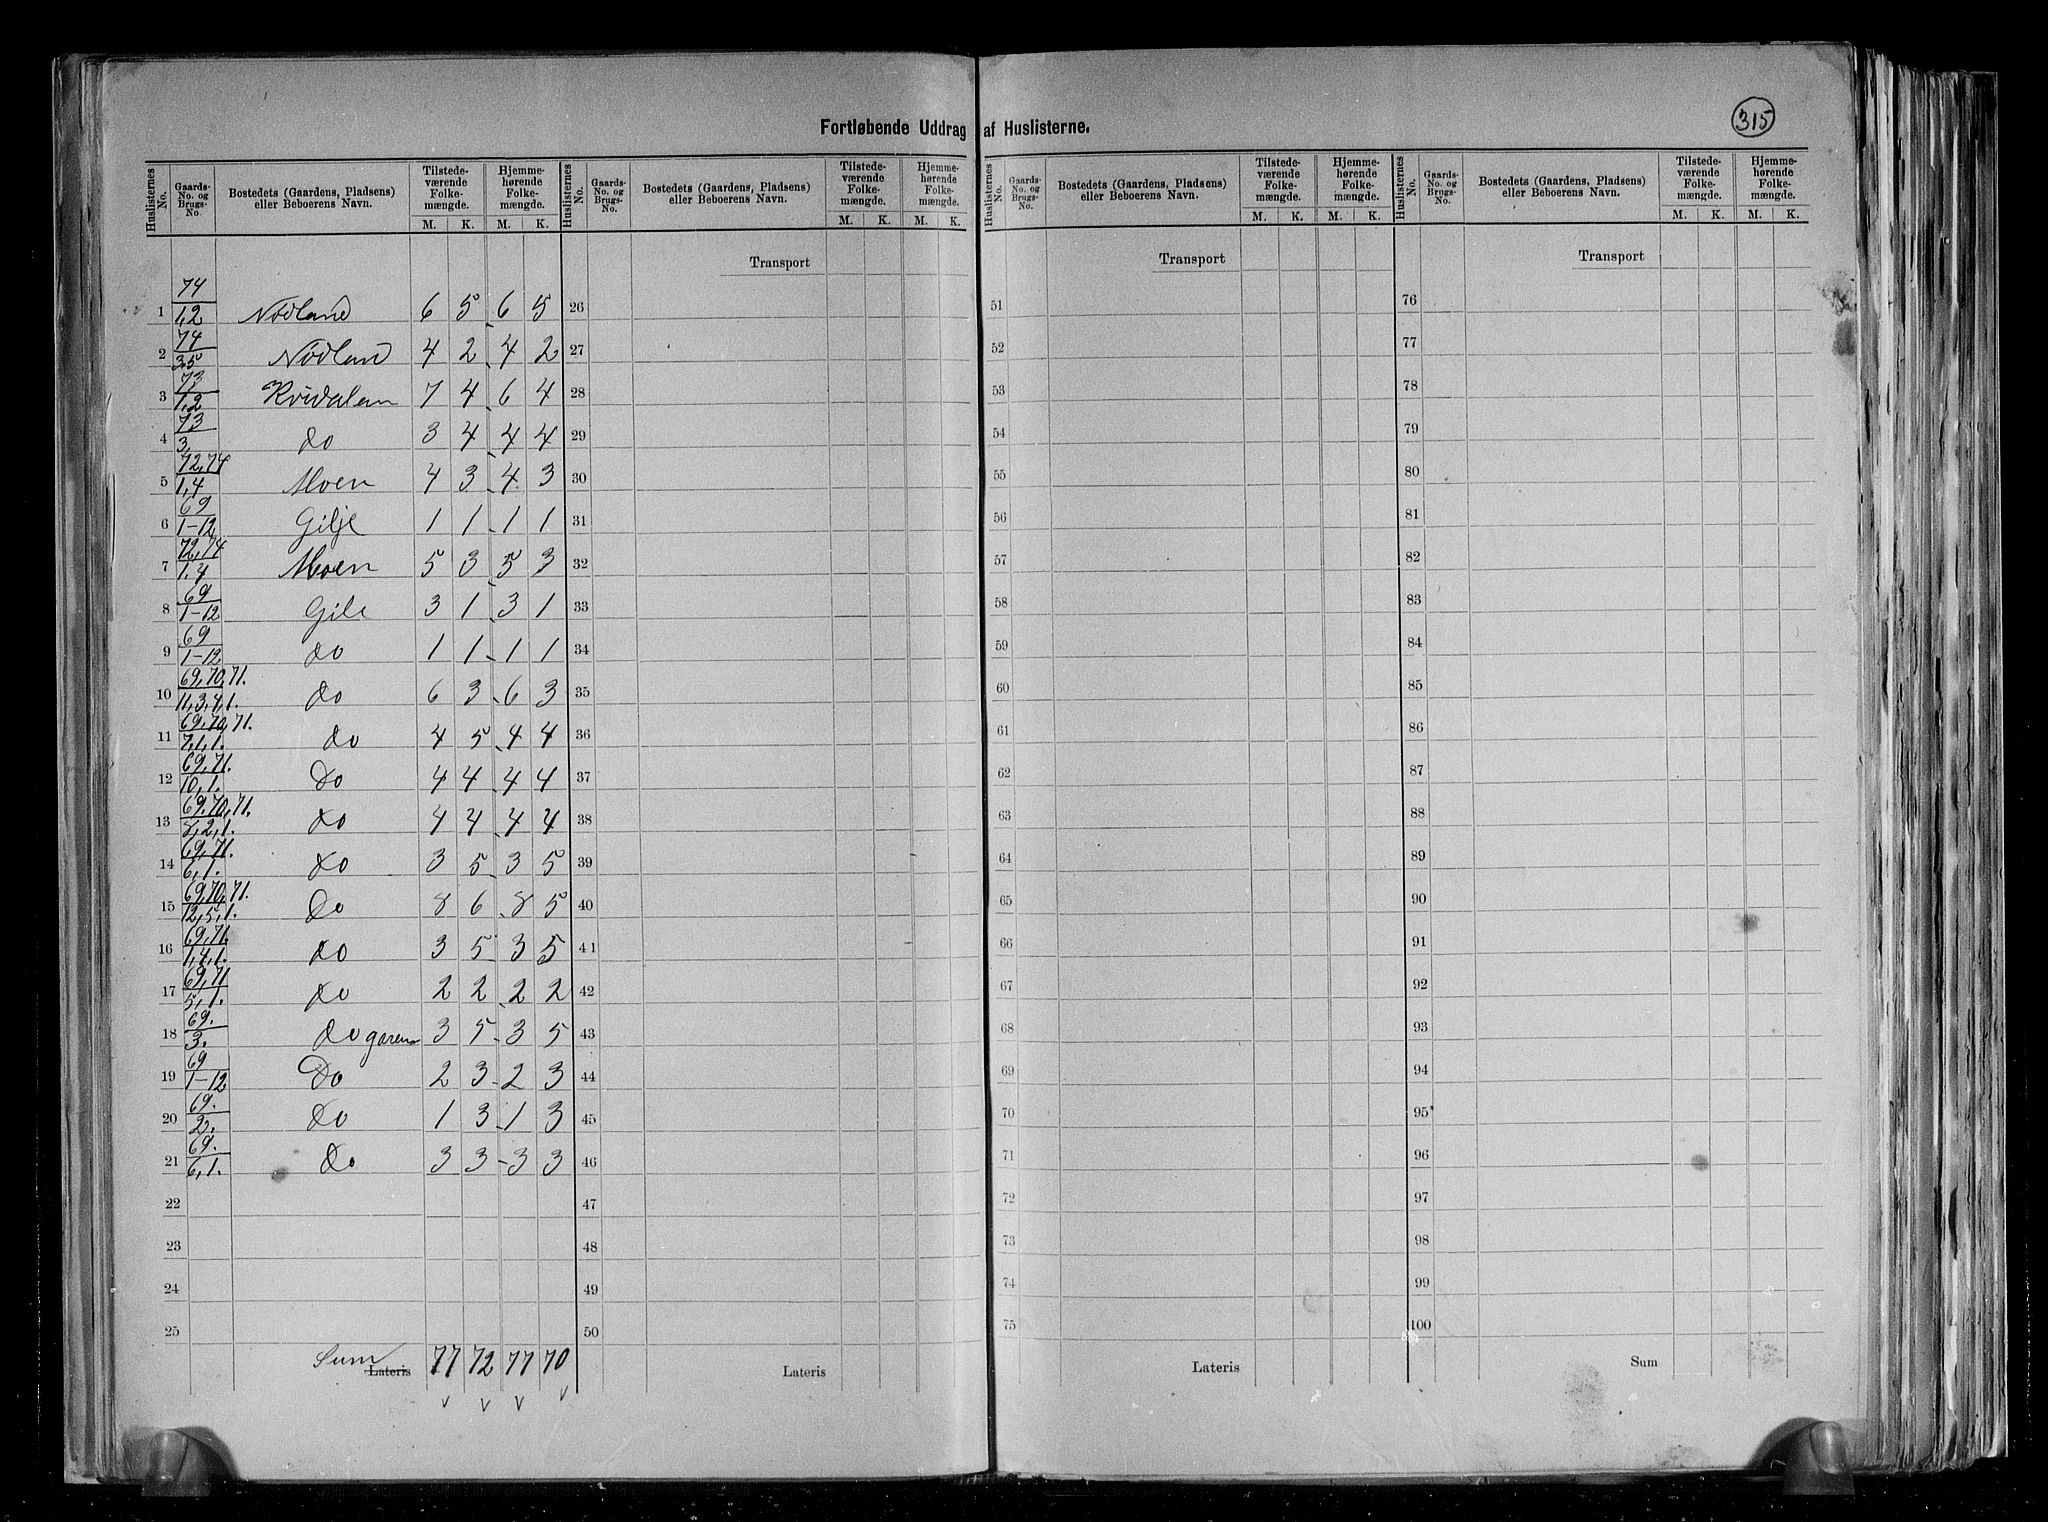 Fortløbende Uddrag af Huslisterne.
315
Huslisternes No. Gaards-No. og Brugs-No. Bostedets (Gaardens, Pladsens) eller Beboerens Navn. Tilstede-værende Folke-mængde. M. K. Hjemme-hørende Folke-mængde. M. K.
Huslisternes No. Gaards-No. og Brugs-No. Bostedets (Gaardens, Pladsens) eller Beboerens Navn. Tilstede-værende Folke-mængde. M. K. Hjemme-hørende Folke-mængde. M. K.
Huslisternes No. Gaards-No. og Brugs-No. Bostedets (Gaardens, Pladsens) eller Beboerens Navn. Tilstede-værende Folke-mængde. M. K. Hjemme-hørende Folke-mængde. M. K.
Huslisternes No. Gaards-No. og Brugs-No. Bostedets (Gaardens, Pladsens) eller Beboerens Navn. Tilstede-værende Folke-mængde. M. K. Hjemme-hørende Folke-mængde. M. K.
Transport Transport Transport
1 74/1,2 Nødland 6 5 6 5 26 51 76
2 74/3,5 Nødlan 4 2 4 2 27 52 77
3 73/1,2 Kvidalan 7 4 6 4 28 53 78
4 73/3, do 3 4 4 4 29 54 79
5 72,74/1,4 Moen 4 3 4 3 30 55 80
6 69/1-12 Gilje 1 1 1 1 31 56 81
7 72,74/1,4 Moen 5 3 5 3 32 57 82
8 69/1-12 Gile 3 1 3 1 33 58 83
9 69/1-12 do 1 1 1 1 34 59 84
10 69,70,71./11,3,4,1. do 6 3 6 3 35 60 85
11 69,70,71./7,1,1. do 4 5 4 4 36 61 86
12 69,71./10,1. Do 4 4 4 4 37 62 87
13 69,70,71./8,2,1. do 4 4 4 4 38 63 88
14 69,71./6,1. do 3 5 3 5 39 64 89
15 69,70,71./12,5,1. Do 8 6 8 5 40 65 90
16 69,71./1,4,1. do 3 5 3 5 41 66 91
17 69,71/5,1. do 2 2 2 2 42 67 92
18 69./3. do garen 3 5 3 5 43 68 93
19 69/1-12 Do 2 3 2 3 44 69 94
20 69./2. do 1 3 1 3 45 70 95
21 69./6,1. do 3 3 3 3 46 71 96
22 47 72 97
23 48 73 98
24 49 74 99
25 50 75 100
Sum Lateris 77 72 77 70 Lateris Lateris Sum